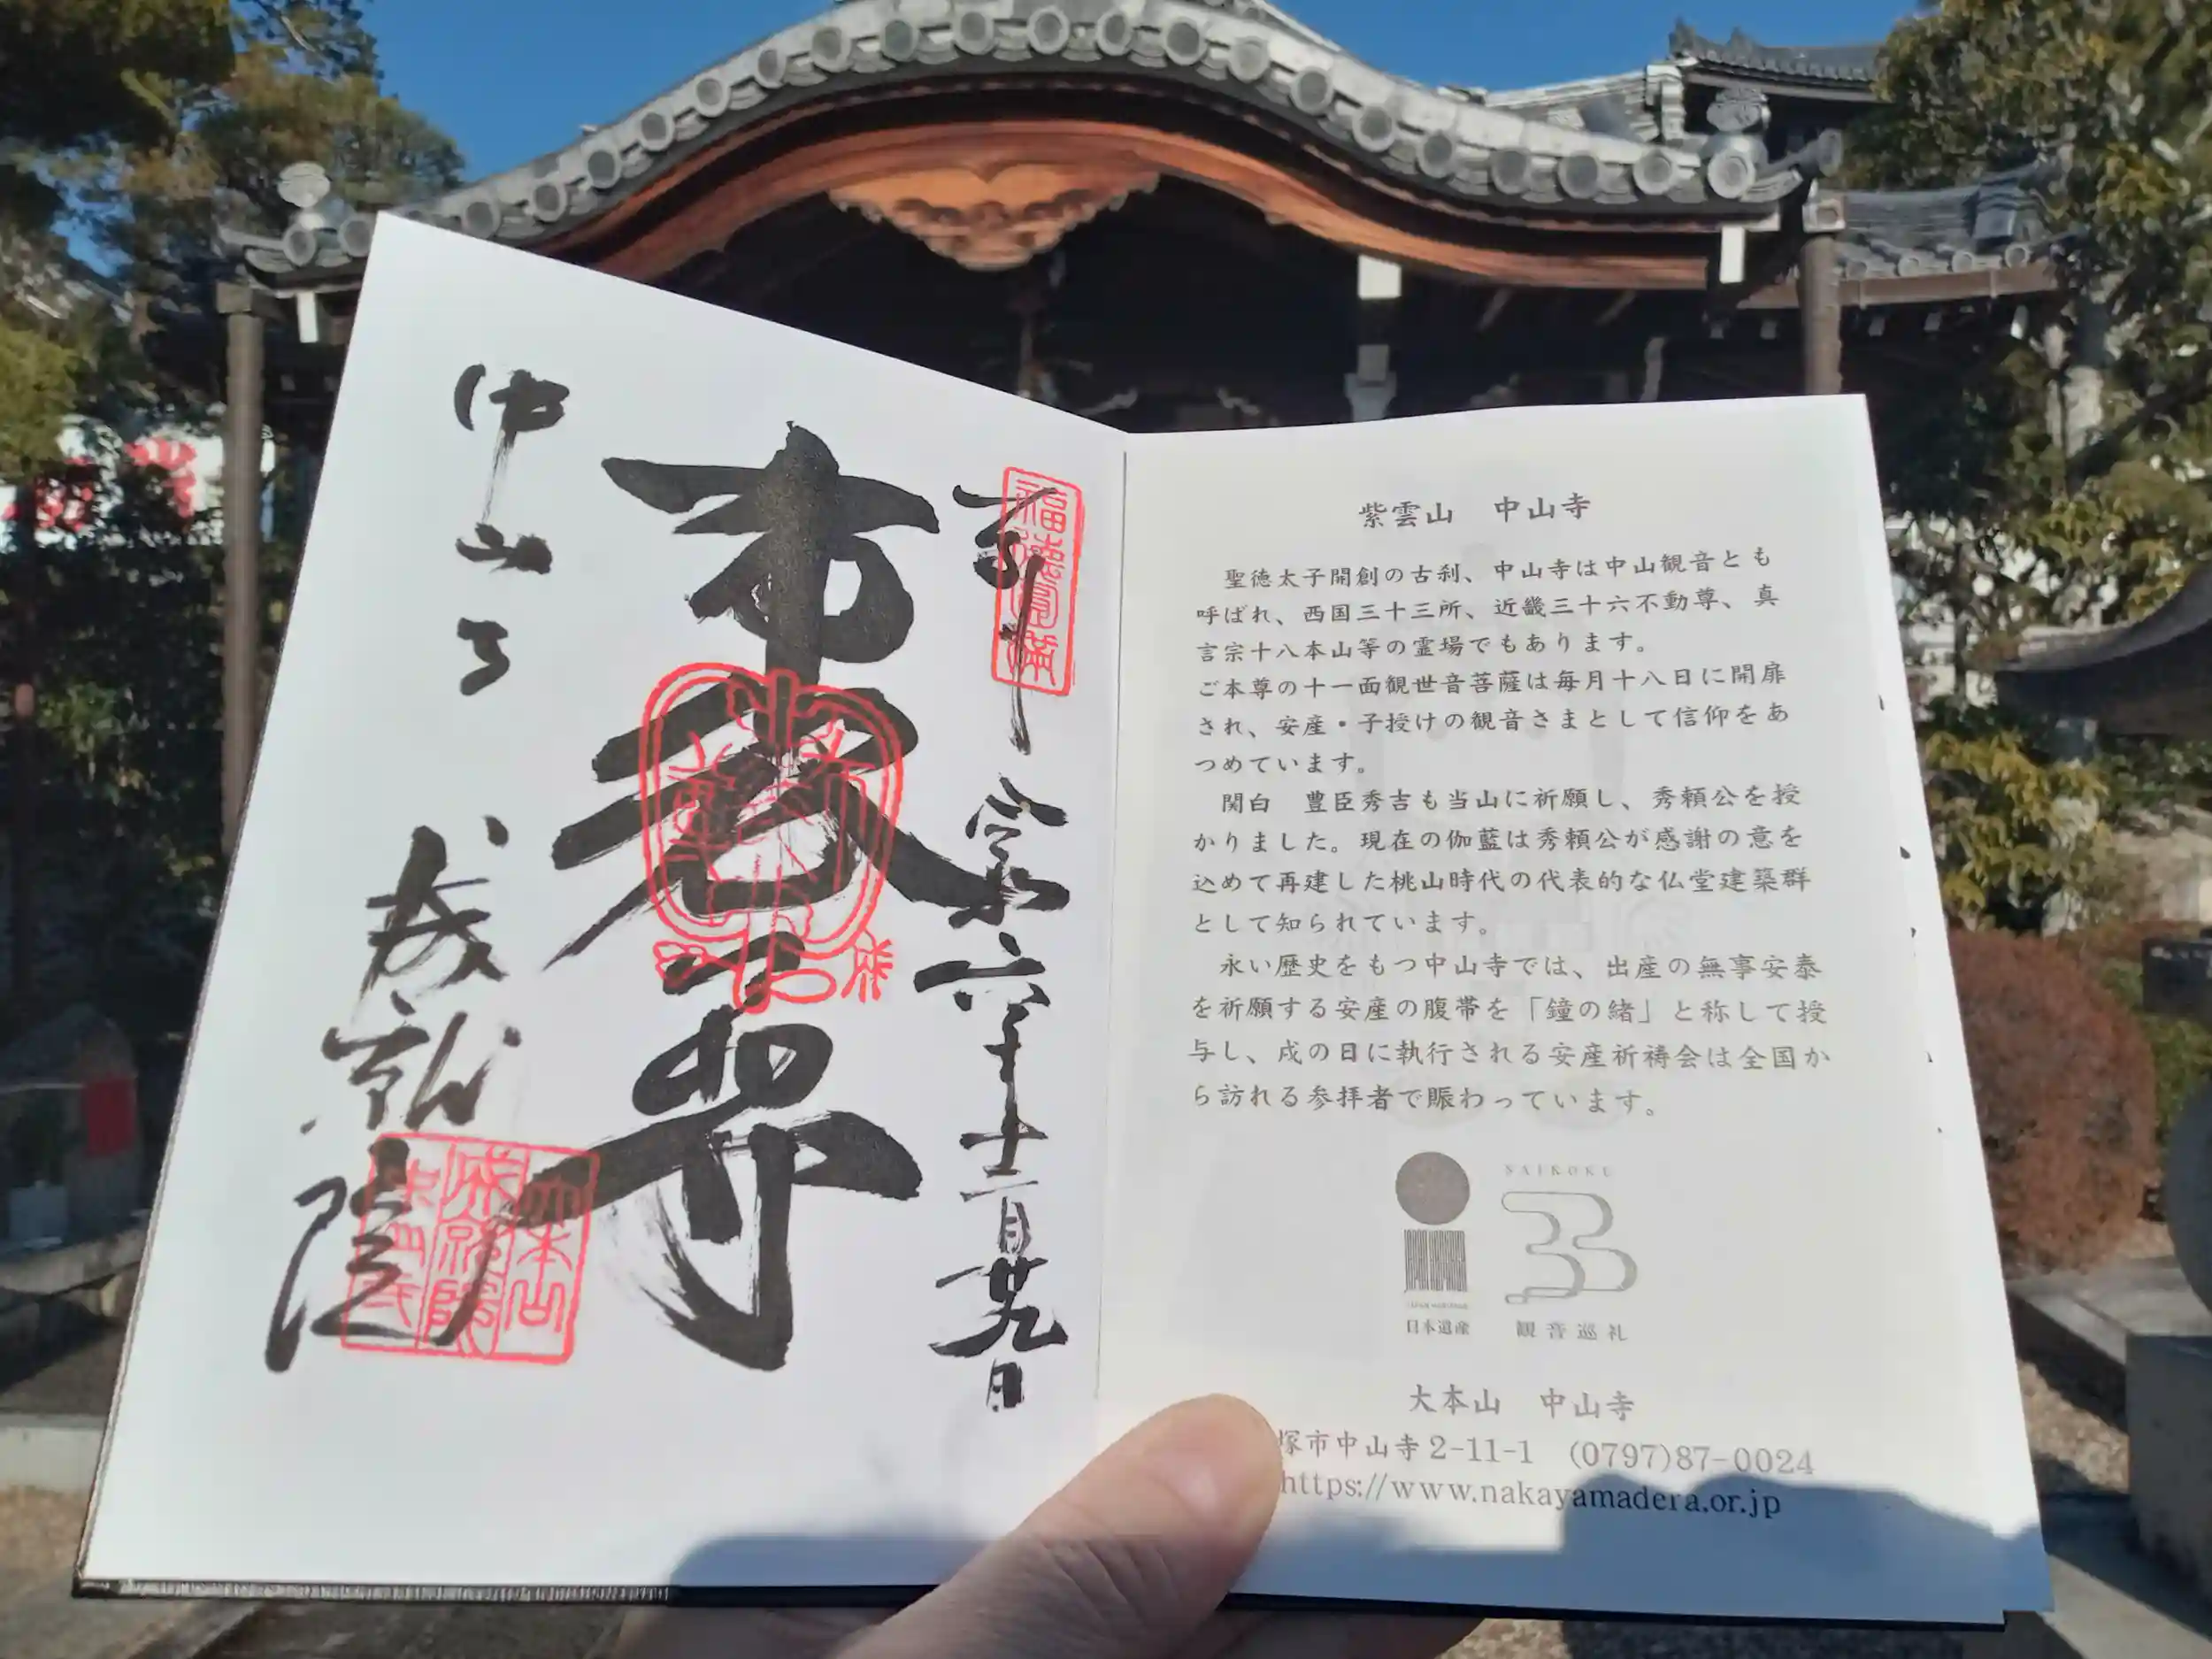 奉拝
令和六年十二月廿九日
布袋尊
中山寺
成就院
福徳円満
大本山
成就院
中山寺
紫雲山 中山寺
聖徳太子開創の古刹、中山寺は中山観音とも
呼ばれ、西国三十三所、近畿三十六不動尊、真
言宗十八本山等の霊場でもあります。
ご本尊の十一面観世音菩薩は毎月十八日に開扉
され、安産・子授けの観音さまとして信仰をあ
つめています。
関白 豊臣秀吉も当山に祈願し、秀頼公を授
かりました。現在の伽藍は秀頼公が感謝の意を
込めて再建した桃山時代の代表的な仏堂建築群
として知られています。
永い歴史をもつ中山寺では、出産の無事安泰
を祈願する安産の腹帯を「鐘の緒」と称して授
与し、戌の日に執行される安産祈祷会は全国か
ら訪れる参拝者で賑わっています。
SAIKOKU
33
日本遺産 観音巡礼
大本山 中山寺
塚市中山寺2-11-1 (0797)87-0024
https://www.nakayamadera.or.jp